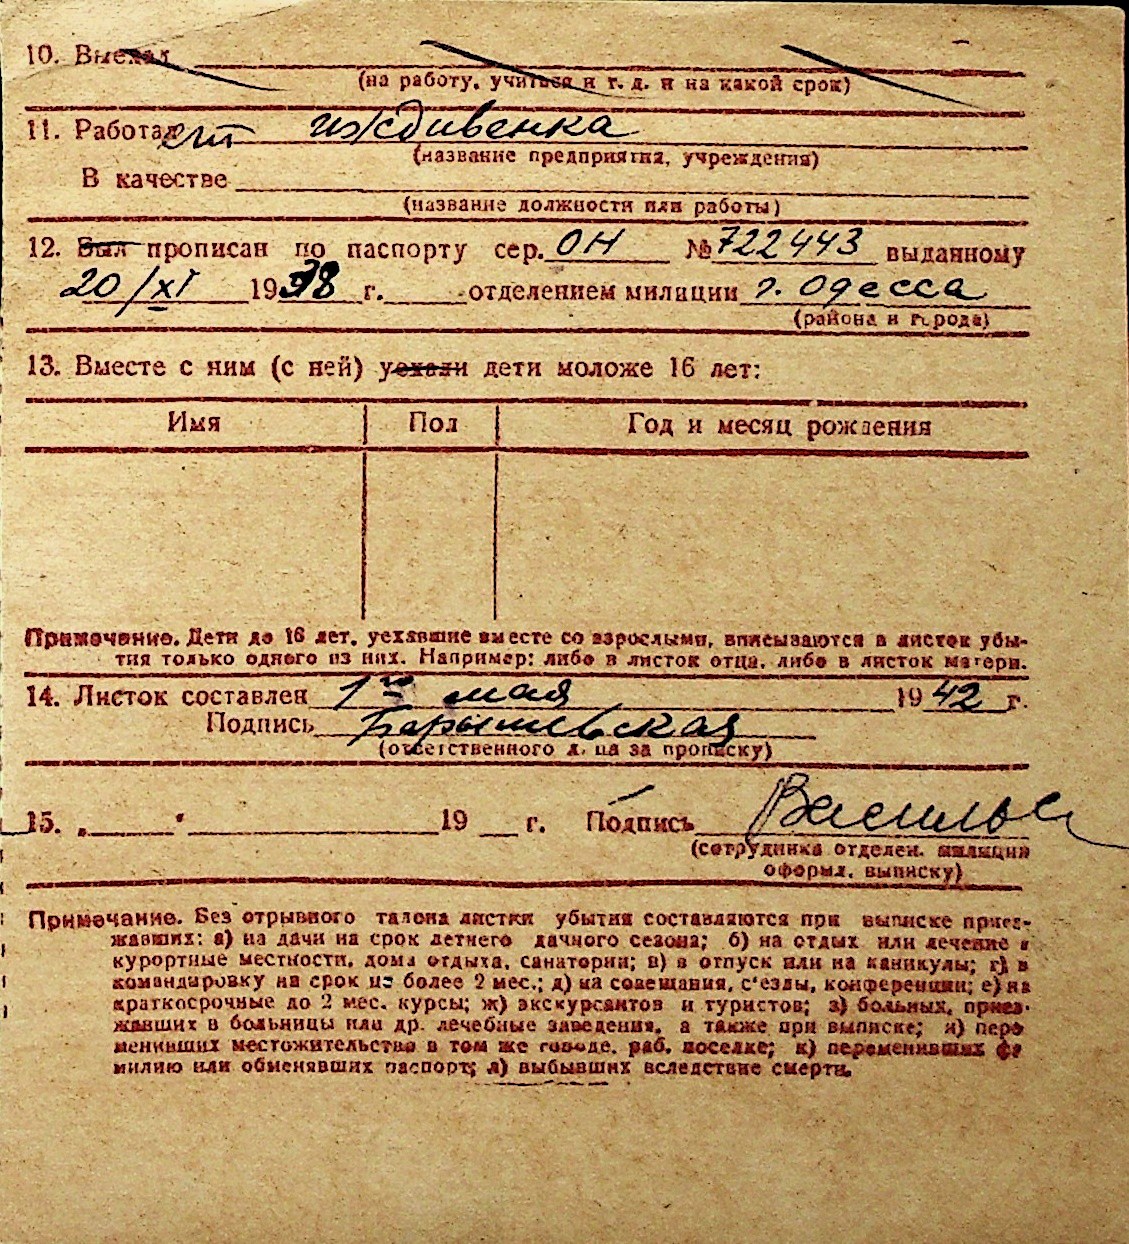 10. Выехал
(на работу, учиться и т. д. и на какой срок)
11. Работает иждивенка
(название предприятия, учреждения)
В качестве
(название должности или работы)
12. Был прописан по паспорту сер. ОН № 722443 выданному
20/XI 1938 г. отделением милиции г. Одесса
(района и города)
13. Вместе с ним (с ней) уехали дети моложе 16 лет:
Имя Пол Год и месяц рождения
Примечание. Дети до 16 лет, уехавшие вместе со взрослыми, вписываются в листок убы-
тия только одного из них. Например: либо в листок отца, либо в листок матери.
14. Листок составлен 1го мая 1942 г.
Подпись Барышевская
(ответственного лица за прописку)
15. „ " 19 г. Подпись
(сотрудника отделен. милиции
оформл. выписку)
Примечание. Без отрывного талона листки убытия составляются при выписке приез-
жавших: а) на дачи на срок летнего дачного сезона; б) на отдых или лечение в
курортные местности, дома отдыха, санатории; в) в отпуск или на каникулы; г) в
командировку на срок не более 2 мес.; д) на совещания, с'езды, конференции; е) на
краткосрочные до 2 мес. курсы; ж) экскурсантов и туристов; з) больных, приез-
жавших в больницы или др. лечебные заведения, а также при выписке; и) пере
менивших местожительство в том же городе, раб. поселке; к) переменивших фа
милию или обменявших паспорт; л) выбывших вследствие смерти.